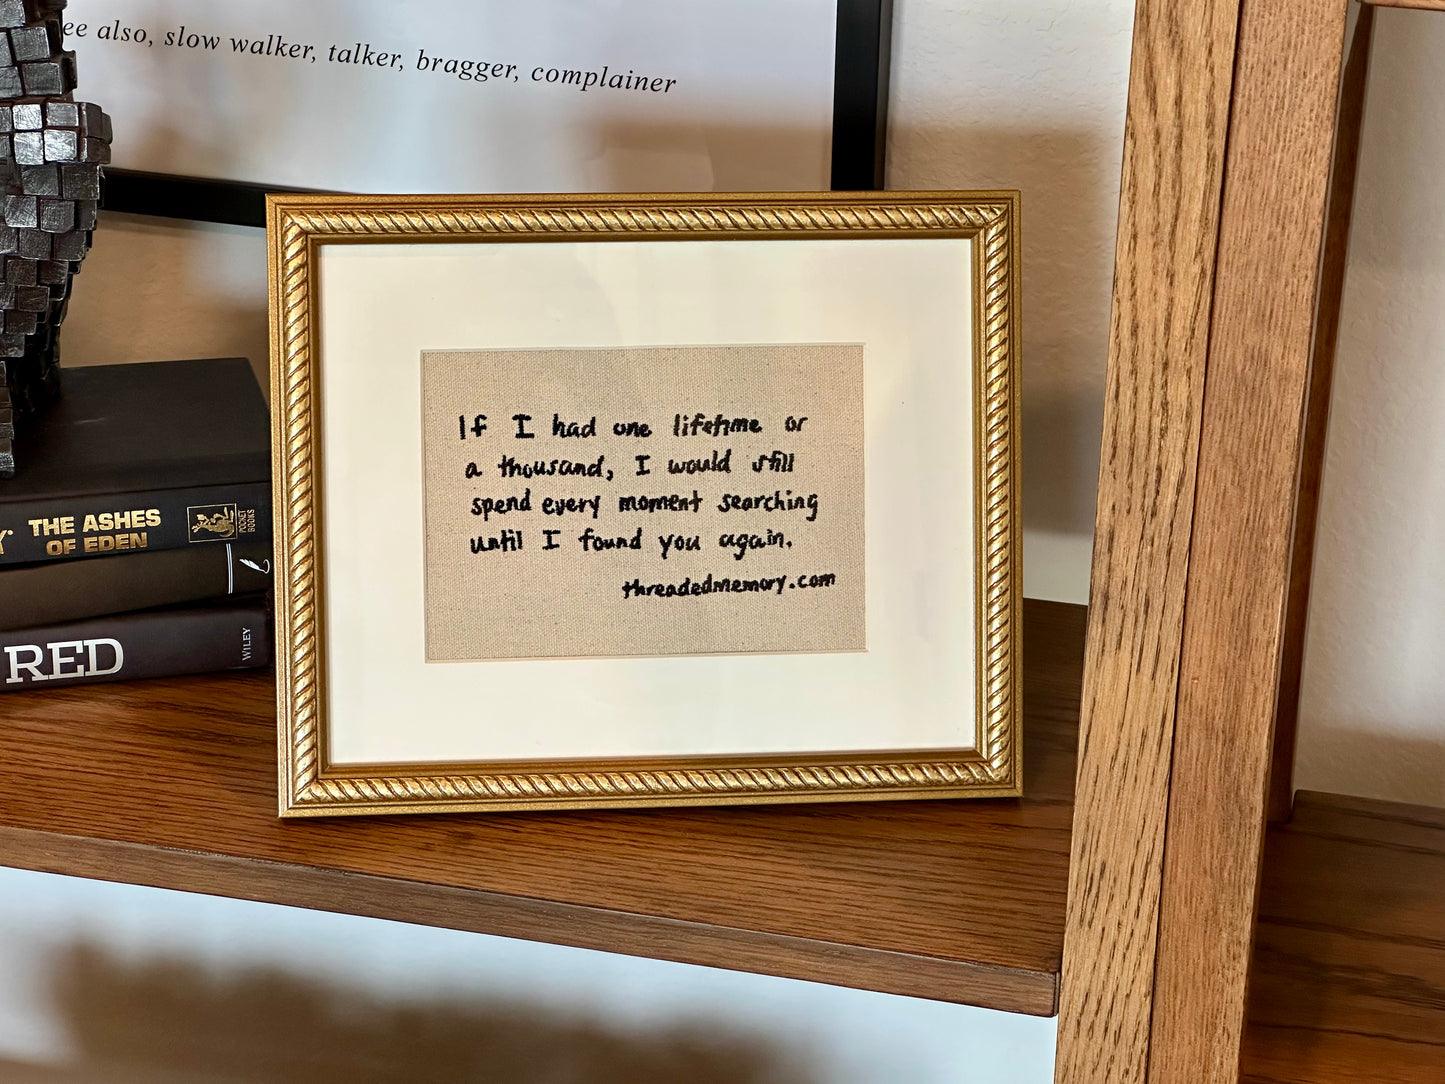 ee also, slow walker, talker, bragger, complainer
If I had one lifetime or
a thousand, I would still
spend every moment searching
until I found you again.
threadedmemory.com
THE ASHES
OF EDEN
POCKET
BOOKS
RED
WILEY